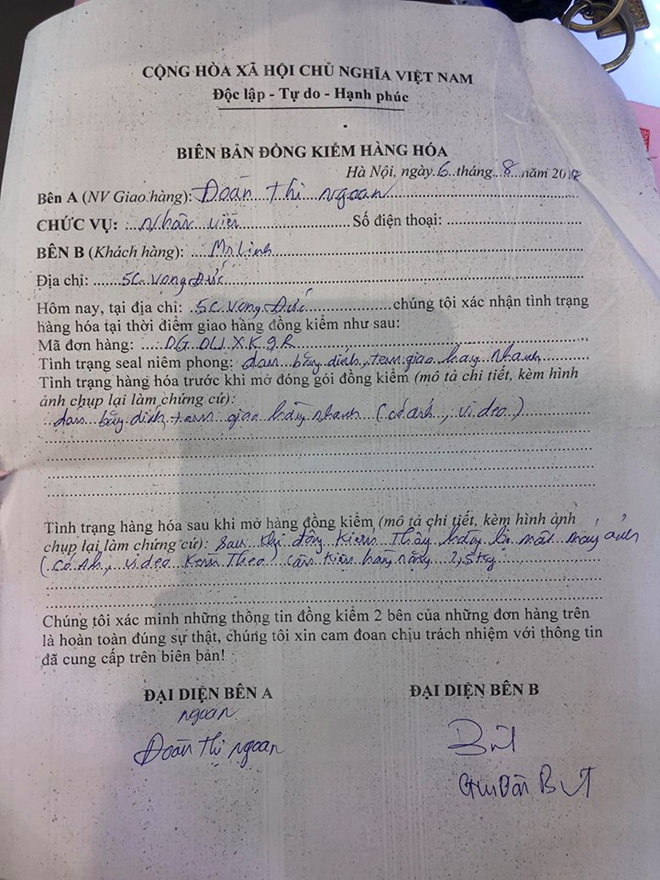 CỘNG HÒA XÃ HỘI CHỦ NGHĨA VIỆT NAM
Độc lập - Tự do - Hạnh phúc
BIÊN BẢN ĐỒNG KIỂM HÀNG HÓA
Hà Nội, ngày 6 tháng 8 năm 201
Bên A (NV Giao hàng): Đoàn Thị Ngoan
CHỨC VỤ: Nhân viên Số điện thoại:
BÊN B (Khách hàng): Mr Linh
Địa chỉ: 5C Vọng Đức
Hôm nay, tại địa chỉ: 5C Vọng Đức chúng tôi xác nhận tình trạng
hàng hóa tại thời điểm giao hàng đồng kiểm như sau:
Mã đơn hàng: DGDUXK9R
Tình trạng seal niêm phong: dán băng dính, tem giao hàng nhanh
Tình trạng hàng hóa trước khi mở đóng gói đồng kiểm (mô tả chi tiết, kèm hình
ảnh chụp lại làm chứng cứ):
dán băng dính tem giao hàng nhanh (có ảnh, video)
Tình trạng hàng hóa sau khi mở hàng đồng kiểm (mô tả chi tiết, kèm hình ảnh
chụp lại làm chứng cứ): Sau khi đồng kiểm thấy hàng bị mất máy ảnh
(có ảnh, video kèm theo) cân kiện hàng nặng 2,5kg
Chúng tôi xác minh những thông tin đồng kiểm 2 bên của những đơn hàng trên
là hoàn toàn đúng sự thật, chúng tôi xin cam đoan chịu trách nhiệm với thông tin
đã cung cấp trên biên bản!
ĐẠI DIỆN BÊN A ĐẠI DIỆN BÊN B
Ngoan
Đoàn Thị Ngoan